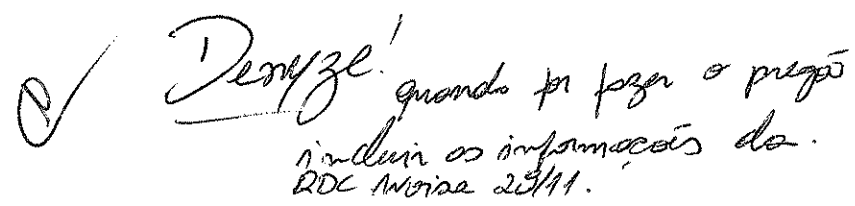 Denyze!
quando for fazer o pregão
incluir as informações da.
RDC Anvisa 29/11.